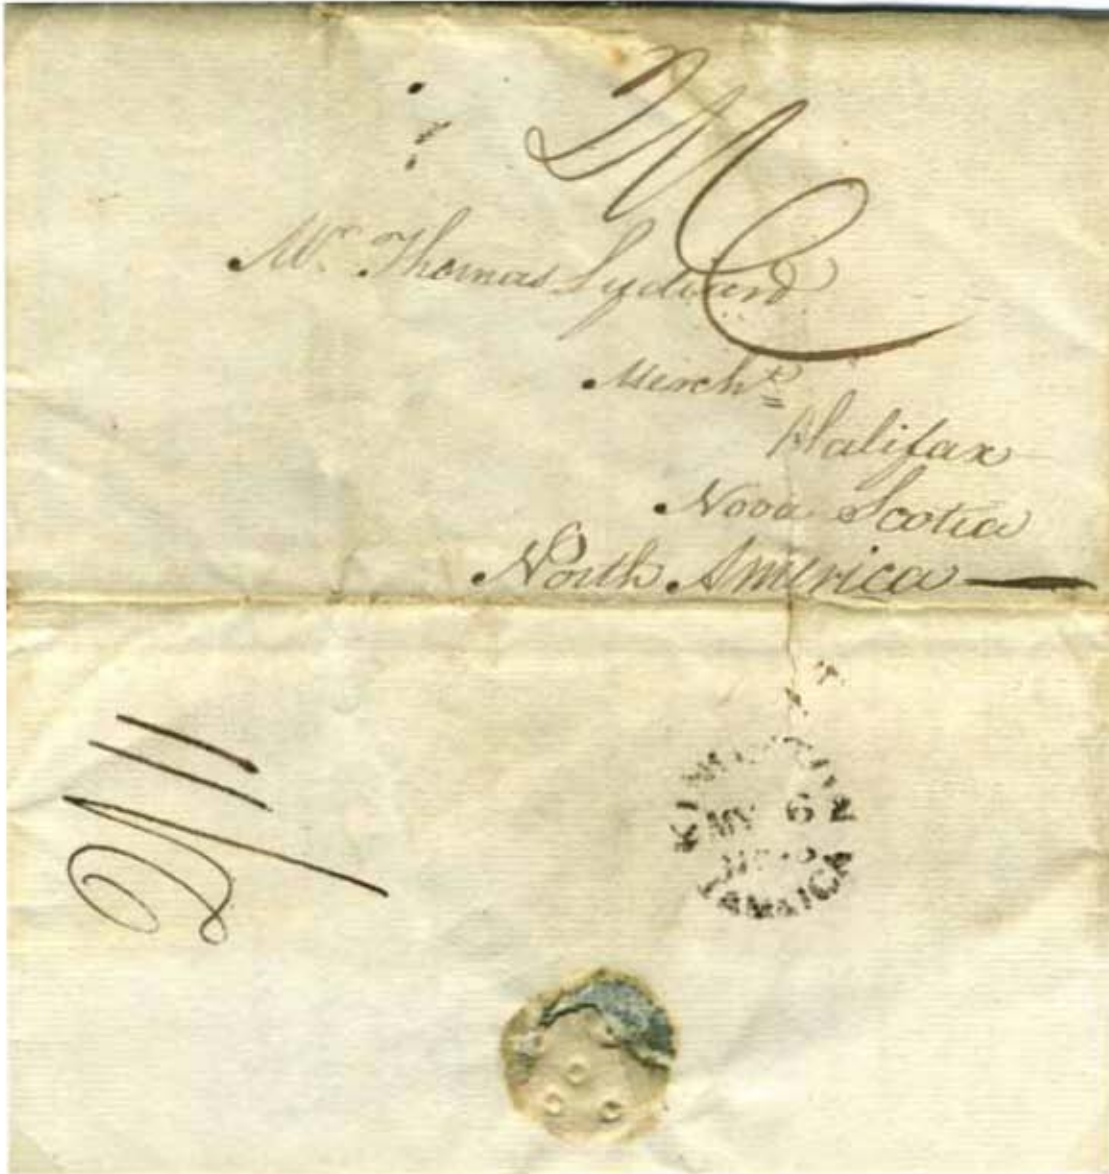 Mr. Thomas Lydiard
Mercht
Halifax
Nova Scotia
North America
KINGSTON
MY 6
JAMAICA